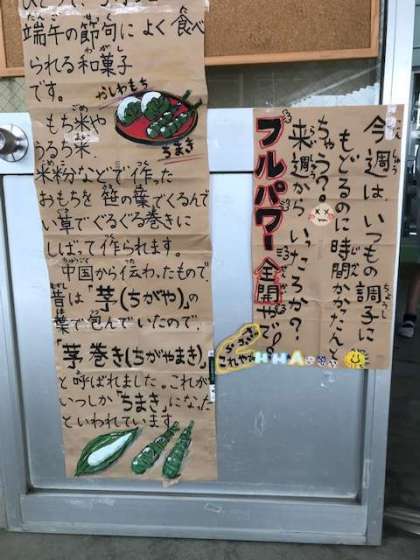 端午の節句によく食べ
られる和菓子
です。
かしわもち
ちまき
もち米や
うるち米、
米粉などで作った
おもちを笹の葉でくるんで
い草でぐるぐる巻きに
しばって作られます。
中国から伝わったもので、
昔は「茅(ちがや)」の
葉で包んでいたので、
「茅巻き(ちがやまき)」
と呼ばれました。これが
いつしか「ちまき」になった
といわれています。
今週は、いつもの調子に
もどるのに時間かかったん
ちゃう？
来週から いったろか？
フルパワー全開やで!!